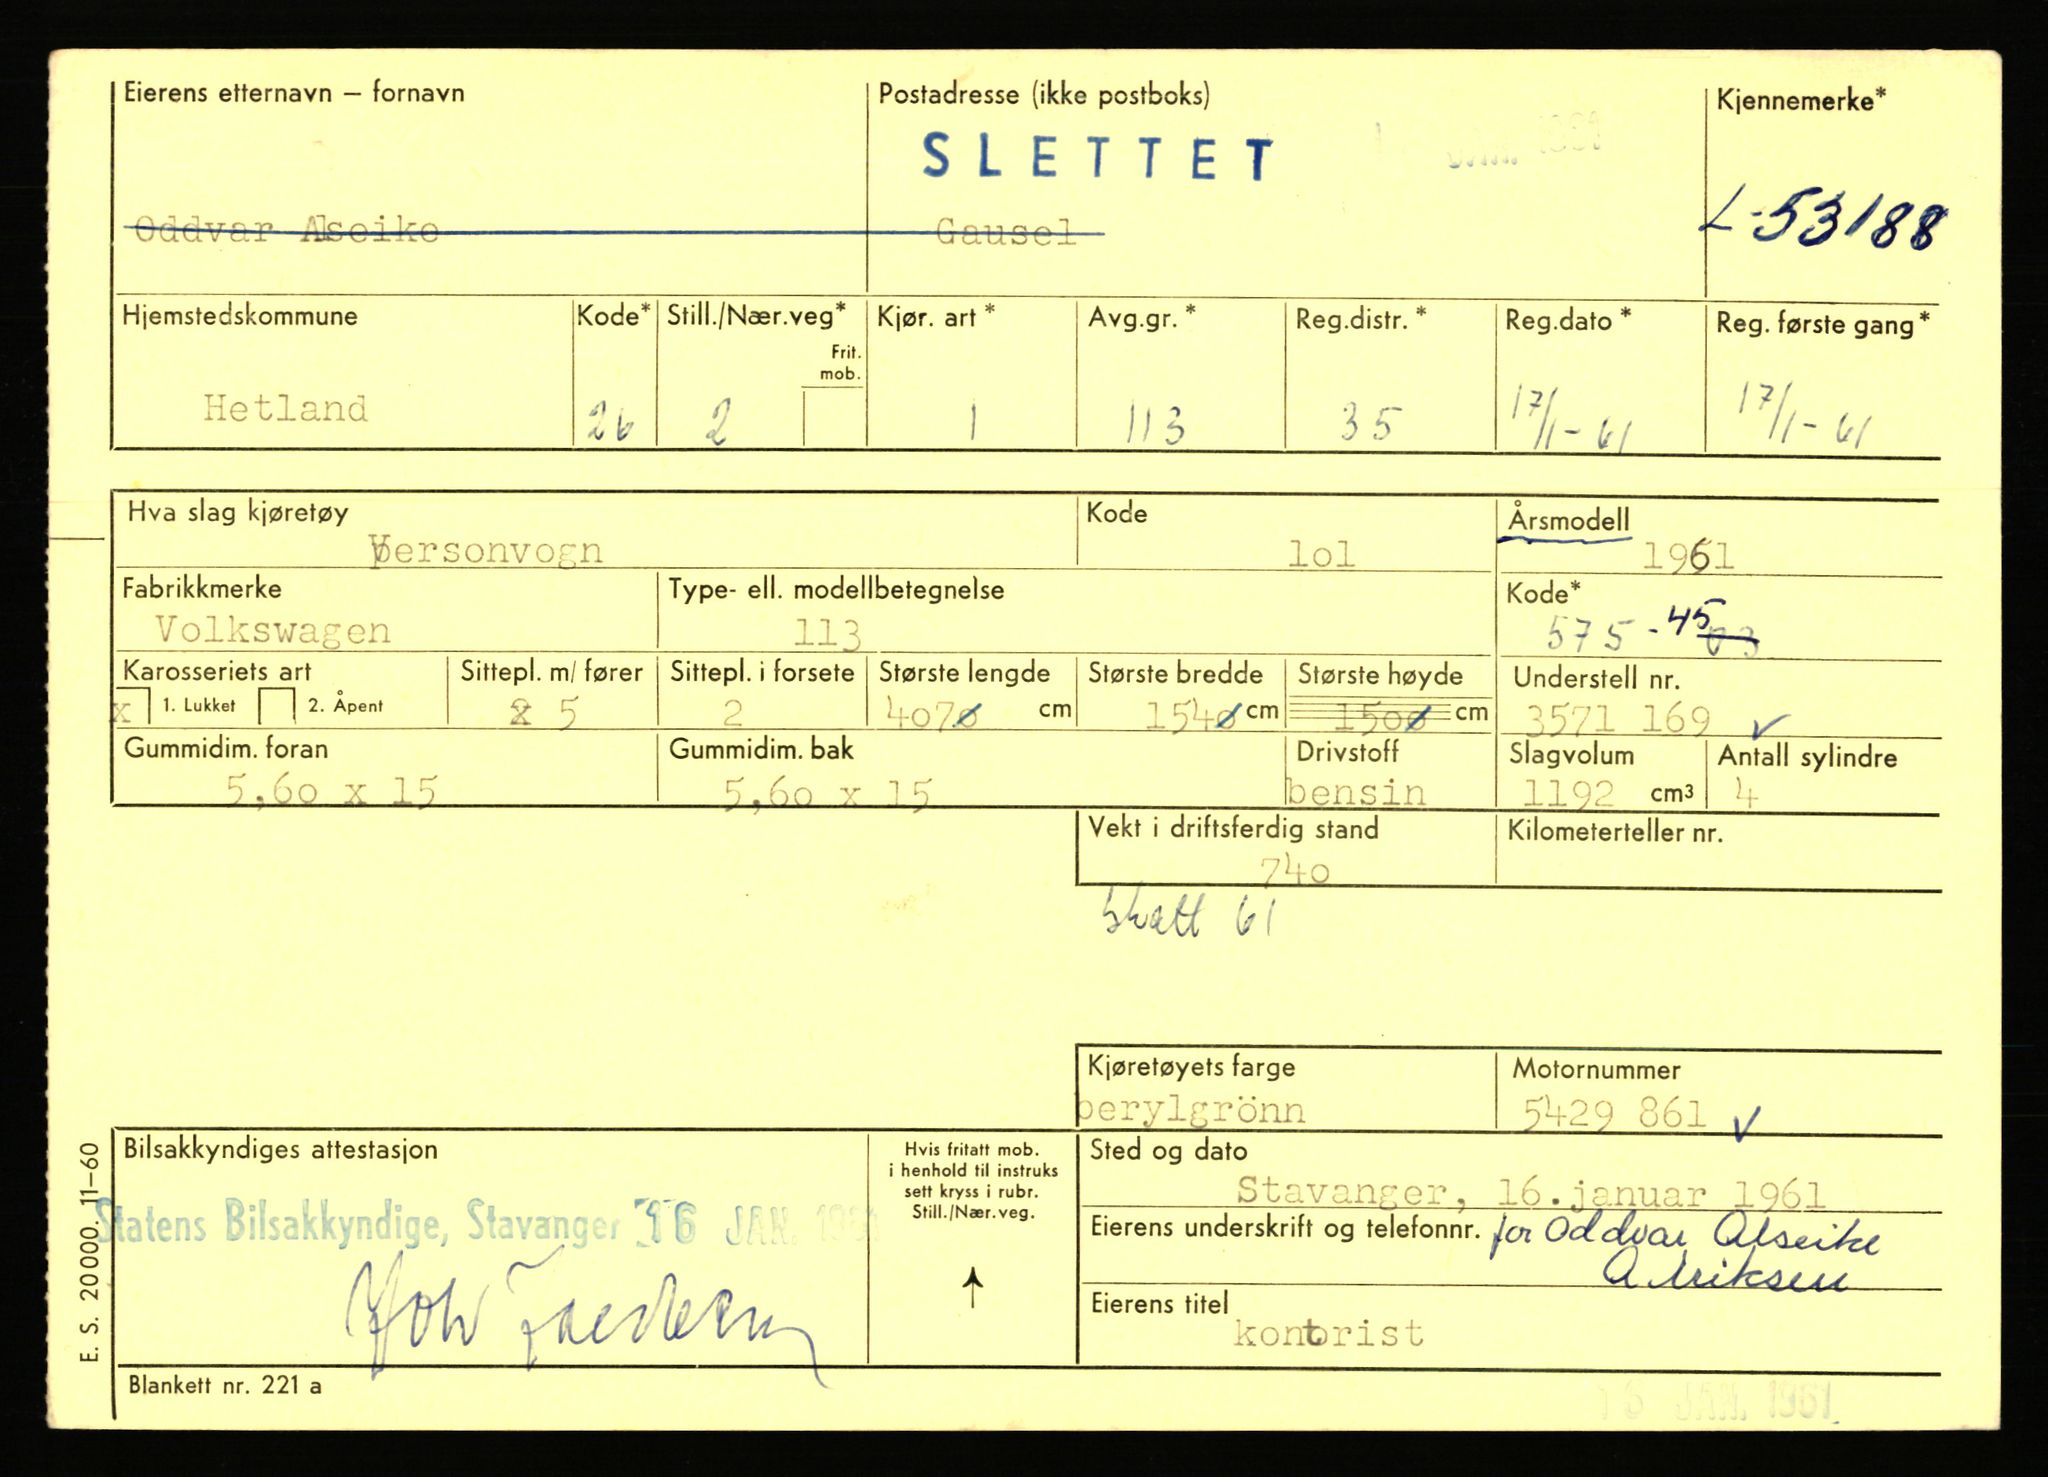 Eierens etternavn – fornavn
Postadresse (ikke postboks)
Kjennemerke*
SLETTET
Oddvar Alseike
Gausel
L-53188
Hjemstedskommune
Kode*
Still./Nær.veg*
Frit. mob.
Kjør. art *
Avg.gr. *
Reg.distr. *
Reg.dato *
Reg. første gang*
Hetland
26
2
1
113
35
17/1-61
17/1-61
Hva slag kjøretøy
Kode
Årsmodell
personvogn
lol
1961
Fabrikkmerke
Type- ell. modellbetegnelse
Kode*
Volkswagen
113
575-45 03
Karosseriets art
Sittepl. m/ fører
Sittepl. i forsete
Største lengde
Største bredde
Største høyde
Understell nr.
x 1. Lukket
2. Åpent
5
2
4070 cm
1540 cm
1500 cm
3571 169
Gummidim. foran
Gummidim. bak
Drivstoff
Slagvolum
Antall sylindre
5,60 x 15
5,60 x 15
bensin
1192 cm³
4
Vekt i driftsferdig stand
Kilometerteller nr.
740
Skatt 61
Kjøretøyets farge
Motornummer
berylgrönn
5429 861
Bilsakkyndiges attestasjon
Hvis fritatt mob.
i henhold til instruks
sett kryss i rubr.
Still./Nær.veg.
Sted og dato
Stavanger, 16.januar 1961
Statens Bilsakkyndige, Stavanger 16 JAN. 1961
Eierens underskrift og telefonnr. for Oddvar Alseike
A Eriksen
Eierens titel
kontorist
E. S. 20000. 11–60
Blankett nr. 221 a
16 JAN. 1961